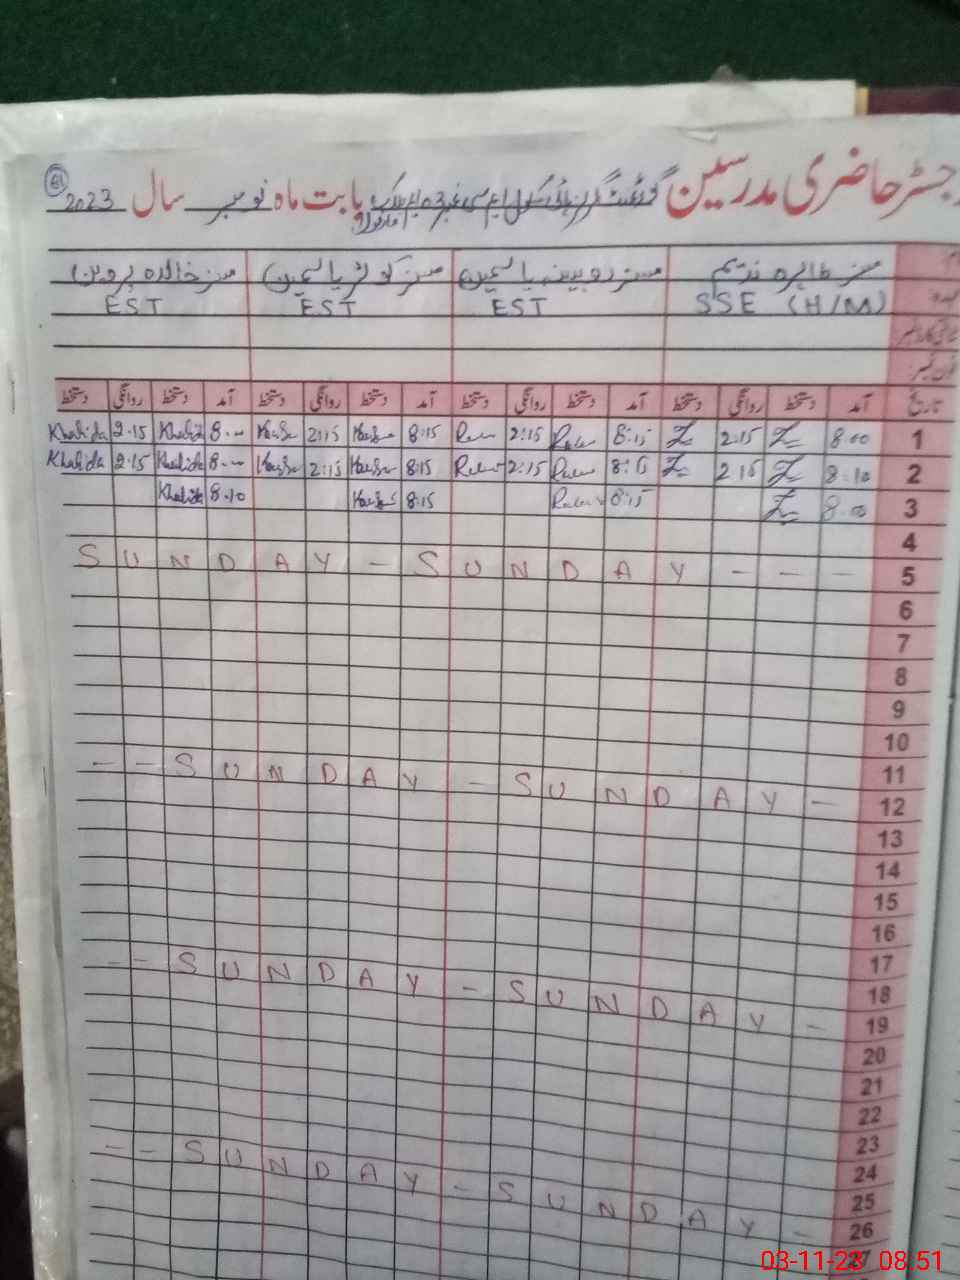 رجسٹر حاضری مدرسین گورنمنٹ گرلز ہائی سکول ایم سی نمبر 3 بابت ماہ نومبر سال 2023
61
مسز طاہرہ ندیم مسز روبینہ یاسمین مسز کوثر یاسمین مسز خالدہ پروین
SSE (H/M) EST EST EST
تاریخ آمد دستخط روانگی دستخط آمد دستخط روانگی دستخط آمد دستخط روانگی دستخط آمد دستخط روانگی دستخط
1 8.00 2.15 8:15 2:15 8:15 2:15 8.00 Khalida 2.15 Khalida
2 8.10 2.15 8:15 2:15 8:15 2:15 8.00 Khalida 2.15 Khalida
3 8.00 8:15 8:15 8.10 Khalida
4
5 SUNDAY - SUNDAY - - -
6
7
8
9
10
11
12 - - SUNDAY - SUNDAY -
13
14
15
16
17
18
19 - - SUNDAY - SUNDAY -
20
21
22
23
24
25
26 - - SUNDAY - SUNDAY -
27
03-11-23 08:51